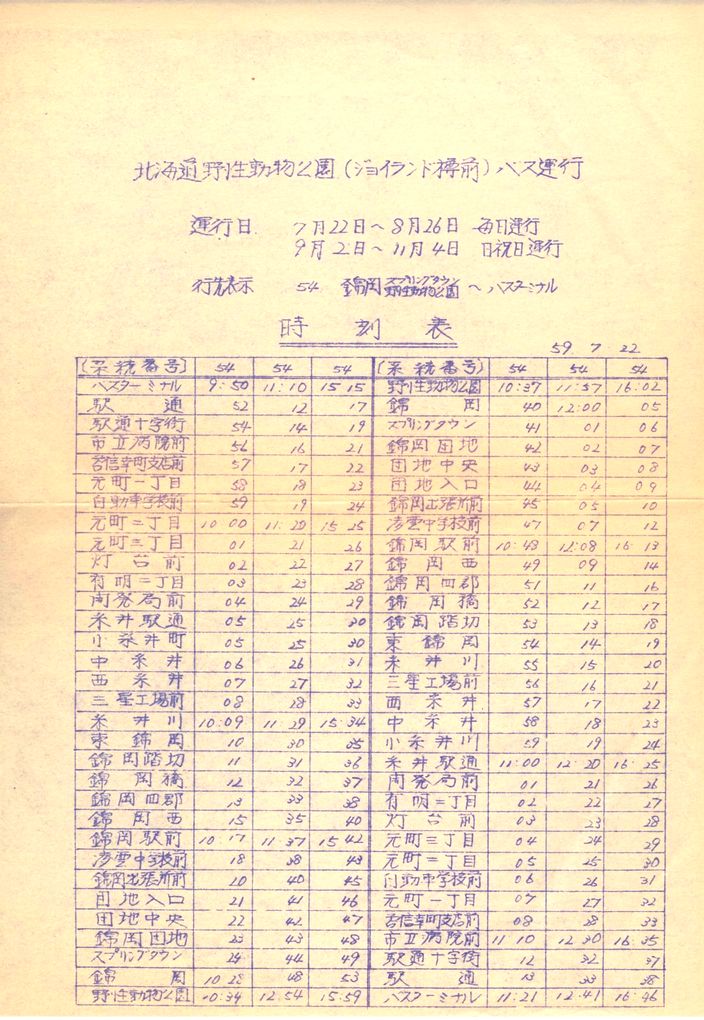 北海道野性動物公園(ジョイランド樽前)バス運行
運行日 7月22日～8月26日 毎日運行
9月2日～11月4日 日祝日運行
行先表示 54 錦岡 スプリングタウン 野性動物公園 ～バスターミナル
時刻表
59 7 22
(系統番号) 54 54 54 (系統番号) 54 54 54
バスターミナル 9:50 11:10 15 15 野性動物公園 10:37 11:57 16:02
駅通 52 12 17 錦岡 40 12:00 05
駅通十字街 54 14 19 スプリングタウン 41 01 06
市立病院前 56 16 21 錦岡団地 42 02 07
苫信幸町支店前 57 17 22 団地中央 43 03 08
元町一丁目 58 18 23 団地入口 44 04 09
自動車学校前 59 19 24 錦岡出張所前 45 05 10
元町二丁目 10 00 11:20 15 25 凌雲中学校前 47 07 12
元町三丁目 01 21 26 錦岡駅前 10:48 12:08 16:13
灯台前 02 22 27 錦岡西 49 09 14
有明二丁目 03 23 28 錦岡四郡 51 11 16
開発局前 04 24 29 錦岡橋 52 12 17
糸井駅通 05 25 30 錦岡踏切 53 13 18
小糸井町 05 25 30 東錦岡 54 14 19
中糸井 06 26 31 糸井川 55 15 20
西糸井 07 27 32 三星工場前 56 16 21
三星工場前 08 28 33 西糸井 57 17 22
糸井川 10:09 11:29 15:34 中糸井 58 18 23
東錦岡 10 30 35 小糸井川 59 19 24
錦岡踏切 11 31 36 糸井駅通 11:00 12:20 16:25
錦岡橋 12 32 37 開発局前 01 21 26
錦岡四郡 13 33 38 有明二丁目 02 22 27
錦岡西 15 35 40 灯台前 03 23 28
錦岡駅前 10:17 11:37 15:42 元町三丁目 04 24 29
凌雲中学校前 18 38 43 元町二丁目 05 25 30
錦岡出張所前 20 40 45 自動車学校前 06 26 31
団地入口 21 41 46 元町一丁目 07 27 32
団地中央 22 42 47 苫信幸町支店前 08 28 33
錦岡団地 23 43 48 市立病院前 11 10 12 30 16:35
スプリングタウン 24 44 49 駅通十字街 12 32 37
錦岡 10:28 48 53 駅通 13 33 38
野性動物公園 10:34 12:54 15:59 バスターミナル 11:21 12:41 16:46